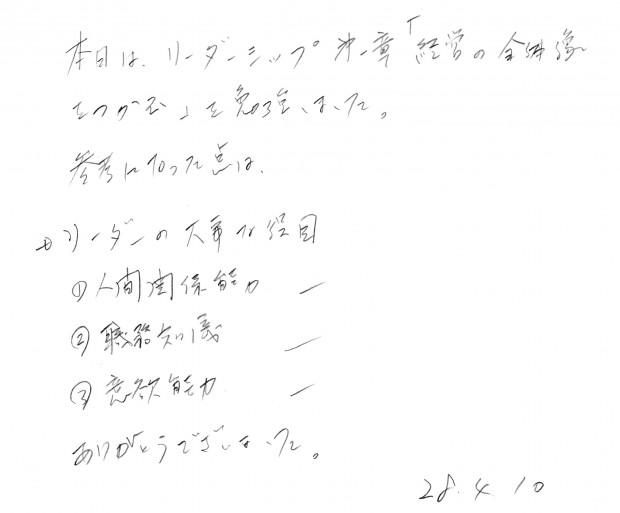 本日は、リーダーシップ 第一章「経営の全体像
をつかむ」を勉強しました。
参考になった点は、
リーダーの大事な役目
① 人間関係能力 ー
② 職務知識 ー
③ 意欲能力 ー
ありがとうございました。
28.4.10